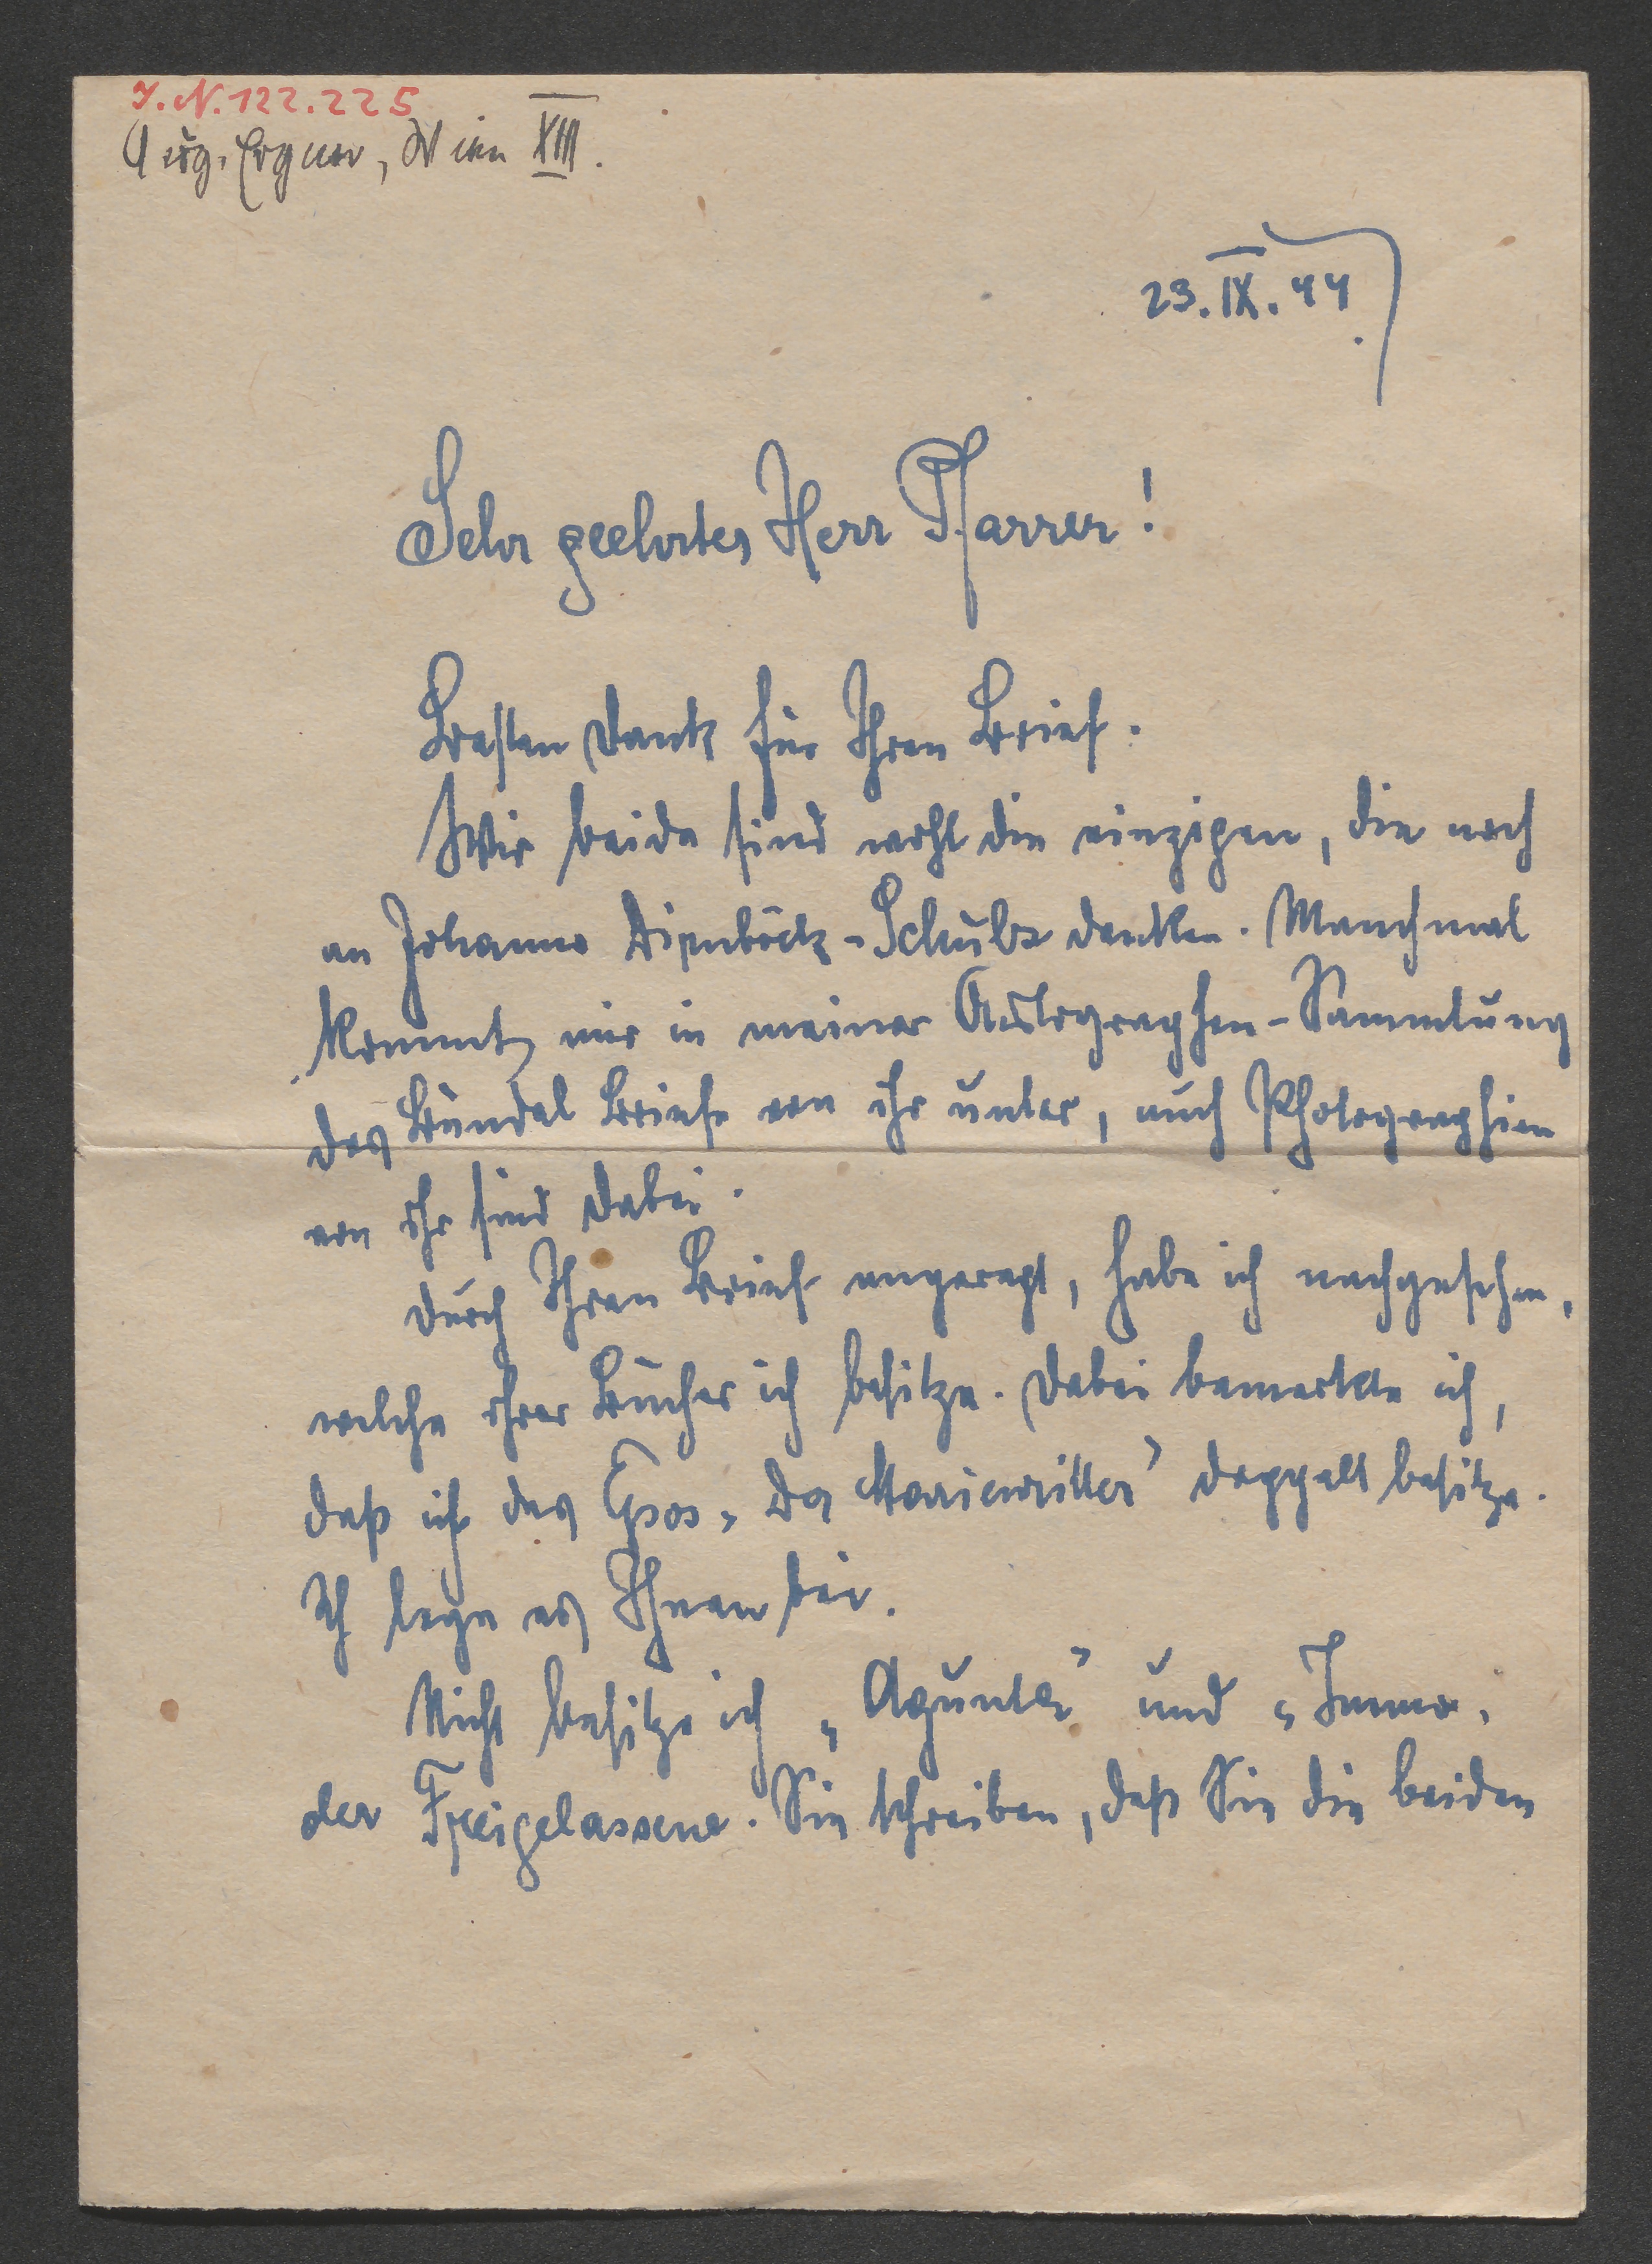 J. N. 122.225
Aug. Ergner, Wien XIII.
23. IX. 44.
Sehr geehrter Herr Pfarrer!
Besten Dank für Ihren Brief.
Wir beide sind wohl die einzigen, die noch
an Johanna -Schulz denken. Manchmal
kommt mir in meiner Autographen-Sammlung
das Bündel Briefe von ihr unter, auch Photographien
von ihr sind dabei.
Durch Ihren Brief angeregt, habe ich nachgesehen,
welche ihrer Bücher ich besitze. Dabei bemerkte ich,
daß ich das Epos „Der Marienritter" doppelt besitze.
Ich lege es Ihnen bei.
Nicht besitze ich „Agunta" und „Immo,
der Freigelassene. Sie schreiben, daß Sie die beiden